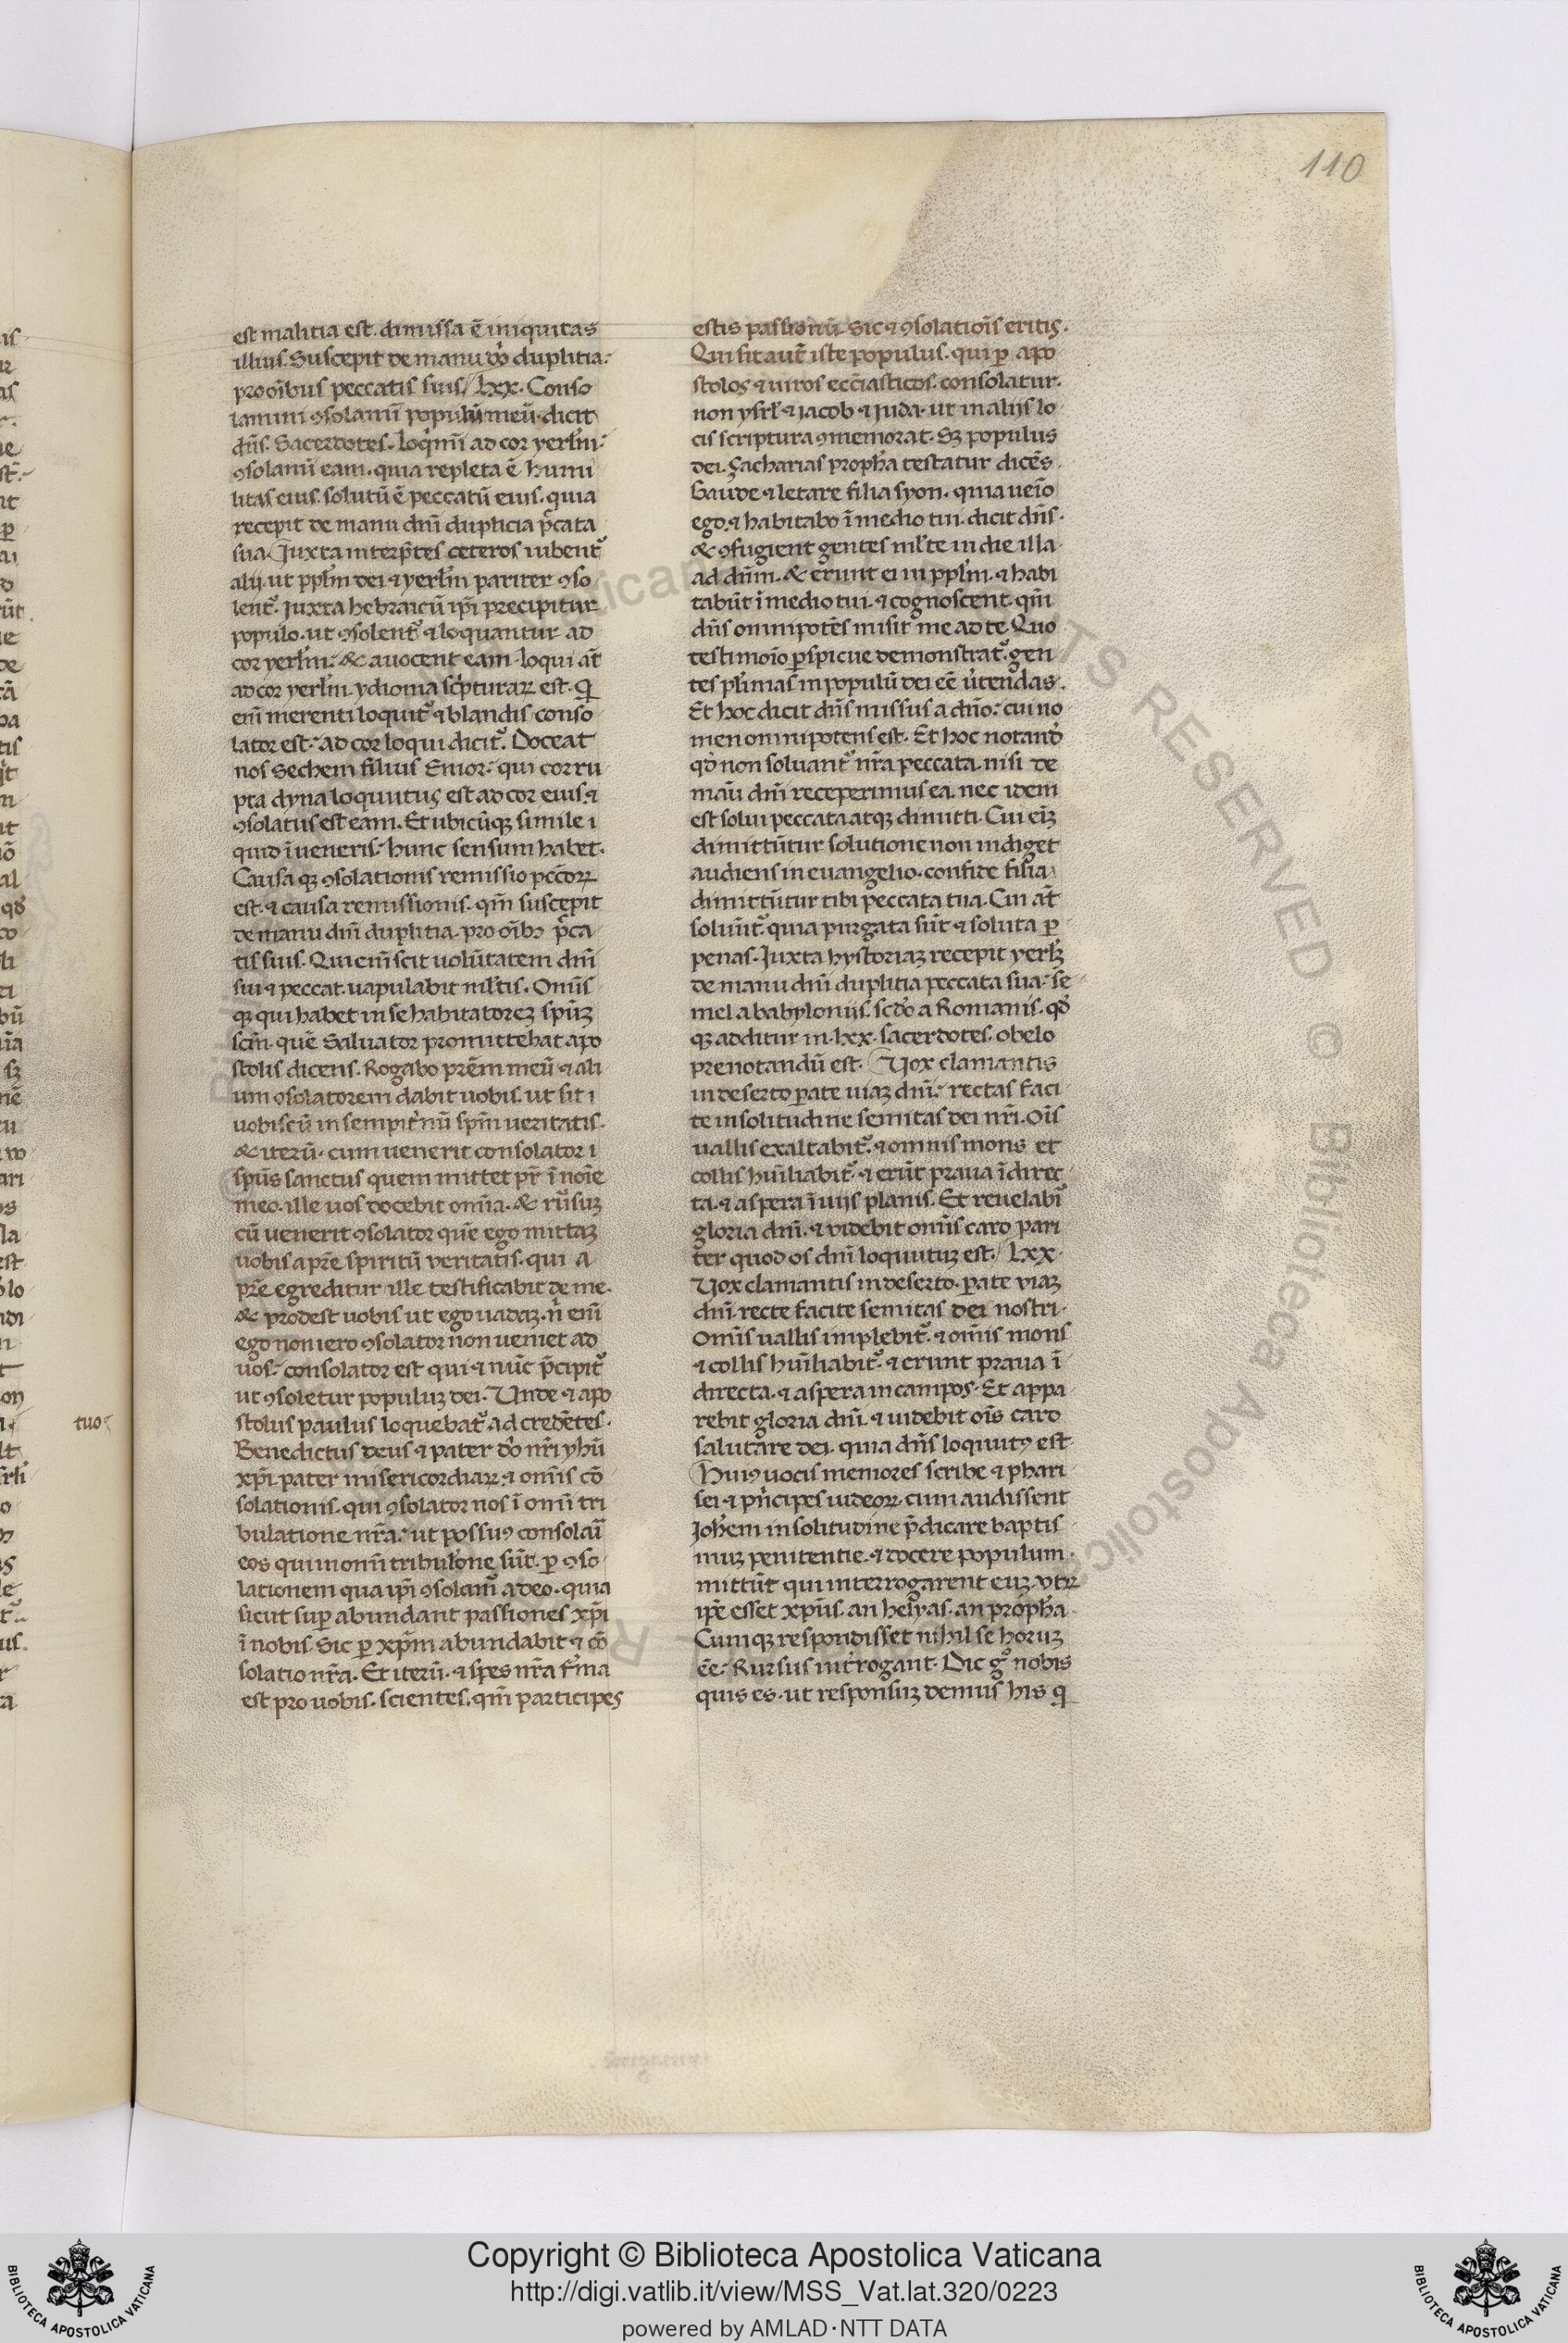 110
est malitia est. dimissa ē iniquitas
illius. Suscepit de manu dō duplitia:
pro oībus peccatis suis. lxx. Conso
lamini ꝯsolamī populū meū. dicit
dn̄s. Sacerdotes. loq̄mī ad cor yerl̄m:
ꝯsolamī eam. quia repleta ē humi
litas eius. solutū ē peccatū eius. quia
recepit de manu dn̄i duplicia p̄cata
sua. Juxta interp̄tes ceteros iubent᷑
alij. ut ppl̄m dei ⁊ yerl̄m pariter ꝯso
lent᷑. Juxta hebraicū ip̄i precipitur
populo. ut ꝯsolent᷑ ⁊ loquantur ad
cor yerl̄m: & avocent eam. loqui at̄
ad cor yerl̄m. ydioma sc̄pturaꝝ est. Q̄
enī merenti loquit᷑ ⁊ blandis conso
lator est: ad cor loqui dicit᷑. Doceat
nos Sechem filius Emor: qui corru
pta dyna loquutus est ad cor eius. ⁊
ꝯsolatus est eam. Et ubicūqꝫ simile i
quid īveneris: hunc sensum habet.
Causa qꝫ ꝯsolationis remissio pccōꝝ
est. ⁊ causa remissionis. qm̄ suscepit
de manu dn̄i duplitia. pro oībꝫ p̄ca
tis suis. Qui enī scit uolūtatem dn̄i
sui ⁊ peccat. uapulabit ml̄tis. Omīs
qꝫ qui habet in se habitatoreꝫ spūꝫ
scm̄. quē Saluator promittebat apo
stolis dicens. Rogabo prēm meū ⁊ ali
um ꝯsolatorem dabit uobis. ut sit i
uobiscū in sempit̄nū spm̄ ueritatis.
& iterū. cum uenerit consolator i
spūs sanctus quem mittet pr̄ ī noīe
meo. ille uos docebit omīa. & rūsuꝫ
cū uenerit ꝯsolator quē ego mittaꝫ
uobis a pr̄e spiritū veritatis. qui a
pr̄e egreditur ille testificabit de me.
& prodest uobis ut ego uadaꝫ. n̄ enī
ego non iero ꝯsolator non ueniet ad
uos: consolator est qui ⁊ nūc p̄cipit᷑
ut ꝯsoletur populuꝫ dei. Unde ⁊ apo
stolus paulus loquebat᷑. ad credētes.
Benedictus deus ⁊ pater dō nr̄i yhū
xp̄i. pater misericordiaꝝ. ⁊ omīs cō
solationis. qui ꝯsolator nos ī omī tri
bulatione nr̄a: ut possuꝯ consolarī
eos qui in omī tribul̄one sūt. ꝑ ꝯso
lationem qua ip̄i ꝯsolam᷑ a deo. quia
sicut suꝑ abundant passiones xp̄i
ī nobis. Sic ꝑ xp̄m abundabit ⁊ cō
solatio nr̄a. Et iterū. ⁊ spes nr̄a f̄ma
est pro uobis. scientes. qm̄ participes
estis passionū. Sic ⁊ ꝯsolatiōis eritis.
Qui sit aut̄ iste populus. qui ꝑ apo
stolos ⁊ uiros eccīasticos. consolatur.
non ysrl̄ ⁊ jacob ⁊ juda. ut in alijs lo
cis scriptura ꝯmemorat. Sꝫ populus
dei. Çacharias proph̄a testatur dicēs.
Gaude ⁊ letare filia syon. quia ueīo
ego. ⁊ habitabo ī medio tui. dicit dn̄s.
& ꝯfugient gentes ml̄te in die illa
ad dn̄m. & erunt ei in ppl̄m. ⁊ habi
tabūt ī medio tui. ⁊ cognoscent. qm̄
dn̄s omnipotēs misit me ad te. Quo
testimoīo ꝑspicue demonstrat᷑. gen
tes pl̄imas in populū dei eē u̇tendas.
Et hoc dicit dn̄s missus a dn̄o: cui no
men omnipotens est. Et hoc notand̄
qd̄ non soluant᷑ nr̄a peccata. nisi de
manū dn̄i receperimus ea. nec idem
est solui peccata atqꝫ dimitti. Cui eīꝫ
dimittūtur solutione non indiget
audiens in euangelio. confide filia
dimittūtur tibi peccata tua. Cui at̄
soluūt᷑. quia purgata sūt ⁊ soluta ꝑ
penas. Juxta hystoriaꝫ recepit yerl̄ꝫ
de manu dn̄i duplitia peccata sua: se
mel a babylonijs. scd̄o a Romanis. qd̄
qꝫ additur in. lxx. sacerdotes. obelo
prenotandū est. Vox clamantis
in deserto parate uiaꝫ dn̄i: rectas faci
te in solitudine semitas dei nr̄i. Oīs
uallis exaltabit᷑. ⁊ omnis mons et
collis hūiliabit᷑. ⁊ erūt praua ī direc
ta. ⁊ aspera ī uijs planis. Et reuelabī
gloria dn̄i. ⁊ videbit omīs caro pari
ter quod os dn̄i loquutuꝫ est. lxx.
Vox clamantis in deserto. ꝑate viaꝫ
dn̄i. recte facite semitas dei nostri.
Omīs uallis implebit᷑. ⁊ omīs mons
⁊ collis hūiliabit᷑. ⁊ erunt praua ī
directa. ⁊ aspera in campos. Et appa
rebit gloria dn̄i. ⁊ uidebit oīs caro
salutare dei. quia dn̄s loquutꝯ est
Huiꝯ uocis memores scribe ⁊ phari
sei ⁊ pn̄cipes iudeoꝝ. cum audissent
Joh̄em in solitudine p̄dicare baptis
muꝫ penitentie. ⁊ docere populum.
mittūt qui interrogarent euꝫ. vtꝝ
ip̄e esset xp̄us. an helyas. an proph̄a.
Cumqꝫ respondisset nihil se horuꝫ
ēe: Rursus int̄rogant. Dic g̊ nobis
quis es. ut responsuꝫ demus his q̄
tuo
Copyright © Biblioteca Apostolica Vaticana
http://digi.vatlib.it/view/MSS_Vat.lat.320/0223
powered by AMLAD·NTT DATA
BIBLIOTECA APOSTOLICA VATICANA
BIBLIOTECA APOSTOLICA VATICANA